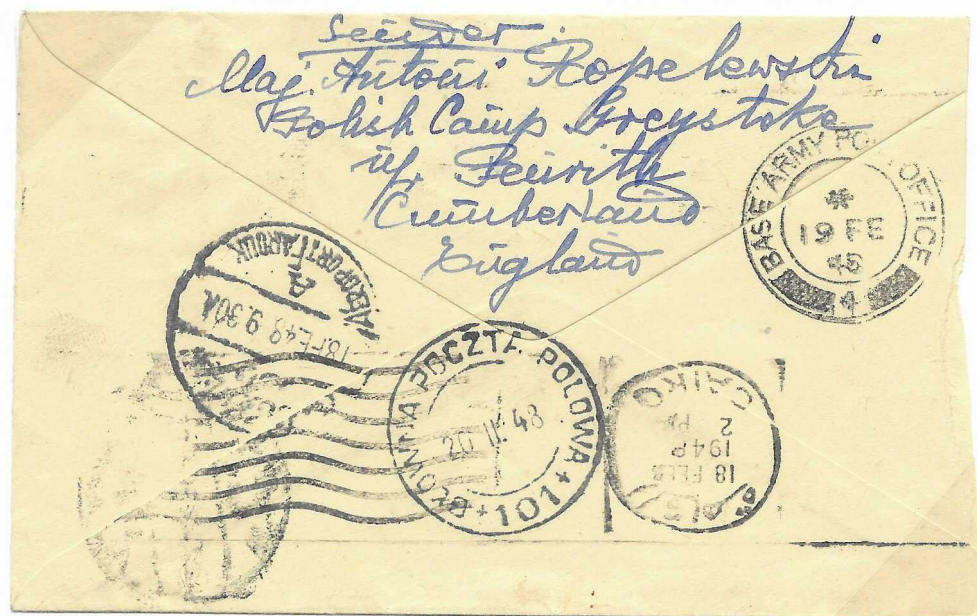 Sender:
Maj. Antoni Ropelewski
Polish Camp Greystoke
Penrith
Cumberland
England
BASE ARMY POST OFFICE
19 FE
4
AEROPORT FAROUK
18 FE 48 9.30 A
GŁÓWNA POCZTA POLOWA
20 II 48
+101+
CAIRO
2 PM
1948
18 FEB